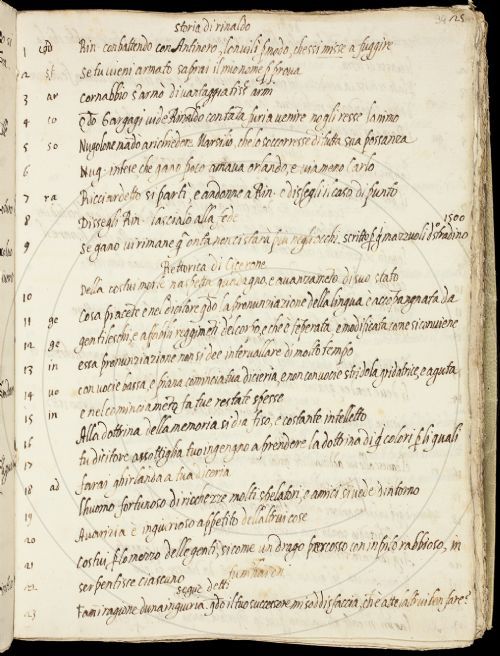 storia di rinaldo
34 125
1 Rin. conbattendo con Antinero, lonuilì modo, chessi misse a fuggire
2 sf se tu uieni armato saprai il mio nome prova
3 ar cornabbio s'armò di uantaggiatiss. armi
4 co Gargagi uide Rinaldo con tāta furia uenire no gli resse l'animo
5 so Nugolone mādò a richiedere Marsilio, che lo soccorresse di tutta sua possanza
6 Nug. intese che gano poco amaua orlando, e uia meno Carlo
7 ra Ricciardetto si partì, e andonne a Rin. e dissegli il caso di punto
8 Dissegli Rin. lascialo alla fede
1500
9 se gano ui rimane onta non ci starà negli occhi, scritto mazzuoli stradino
Rettorica di Cicerone
Della costui morte n'aspetta guadagno, e auanzamēto di suo stato
10 Cosa piacete nel dicitore la pronunziazione della lingua e accōpangnata da
11 ge gentileschi, e reggimēti del corpo, e che è tēperata e modificata come si conuiene
12 ge essa pronunziazione non si dee interuallare di molto tempo
13 in con uocie bassa, e piana comincia tua diceria, e non con uocie stridola, gridatrice, e aguta
14 uo e nel cominciamēto fa tue restate spesse
15 in Alla dottrina della memoria si dia fiso, e costante intelletto
16 tu dicitore assottiglia tuo ingengno a prendere la dottrina di colori li quali
17 farai ghirlanda a tua diceria
18 ad l'huomo fortunoso di ricchezze molti e amici si uede dintorno
19 Auarizia è ingiurioso appetito dell'altrui cose
20 Costui, lo mezzo delle genti, si come un drago percosso con rabbioso, in
21 serpentisce ciascuno
22 segue detto
23 Fami ragione d'una ingiuria, il tuo successore mi soddisfaccia, che è